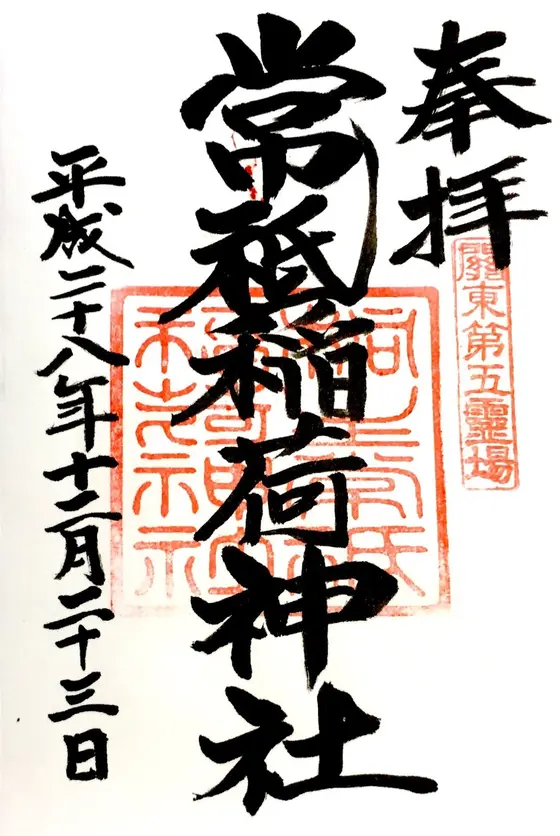 奉拝
關東第五靈場
常祗稲荷神社
平成二十八年十二月二十三日